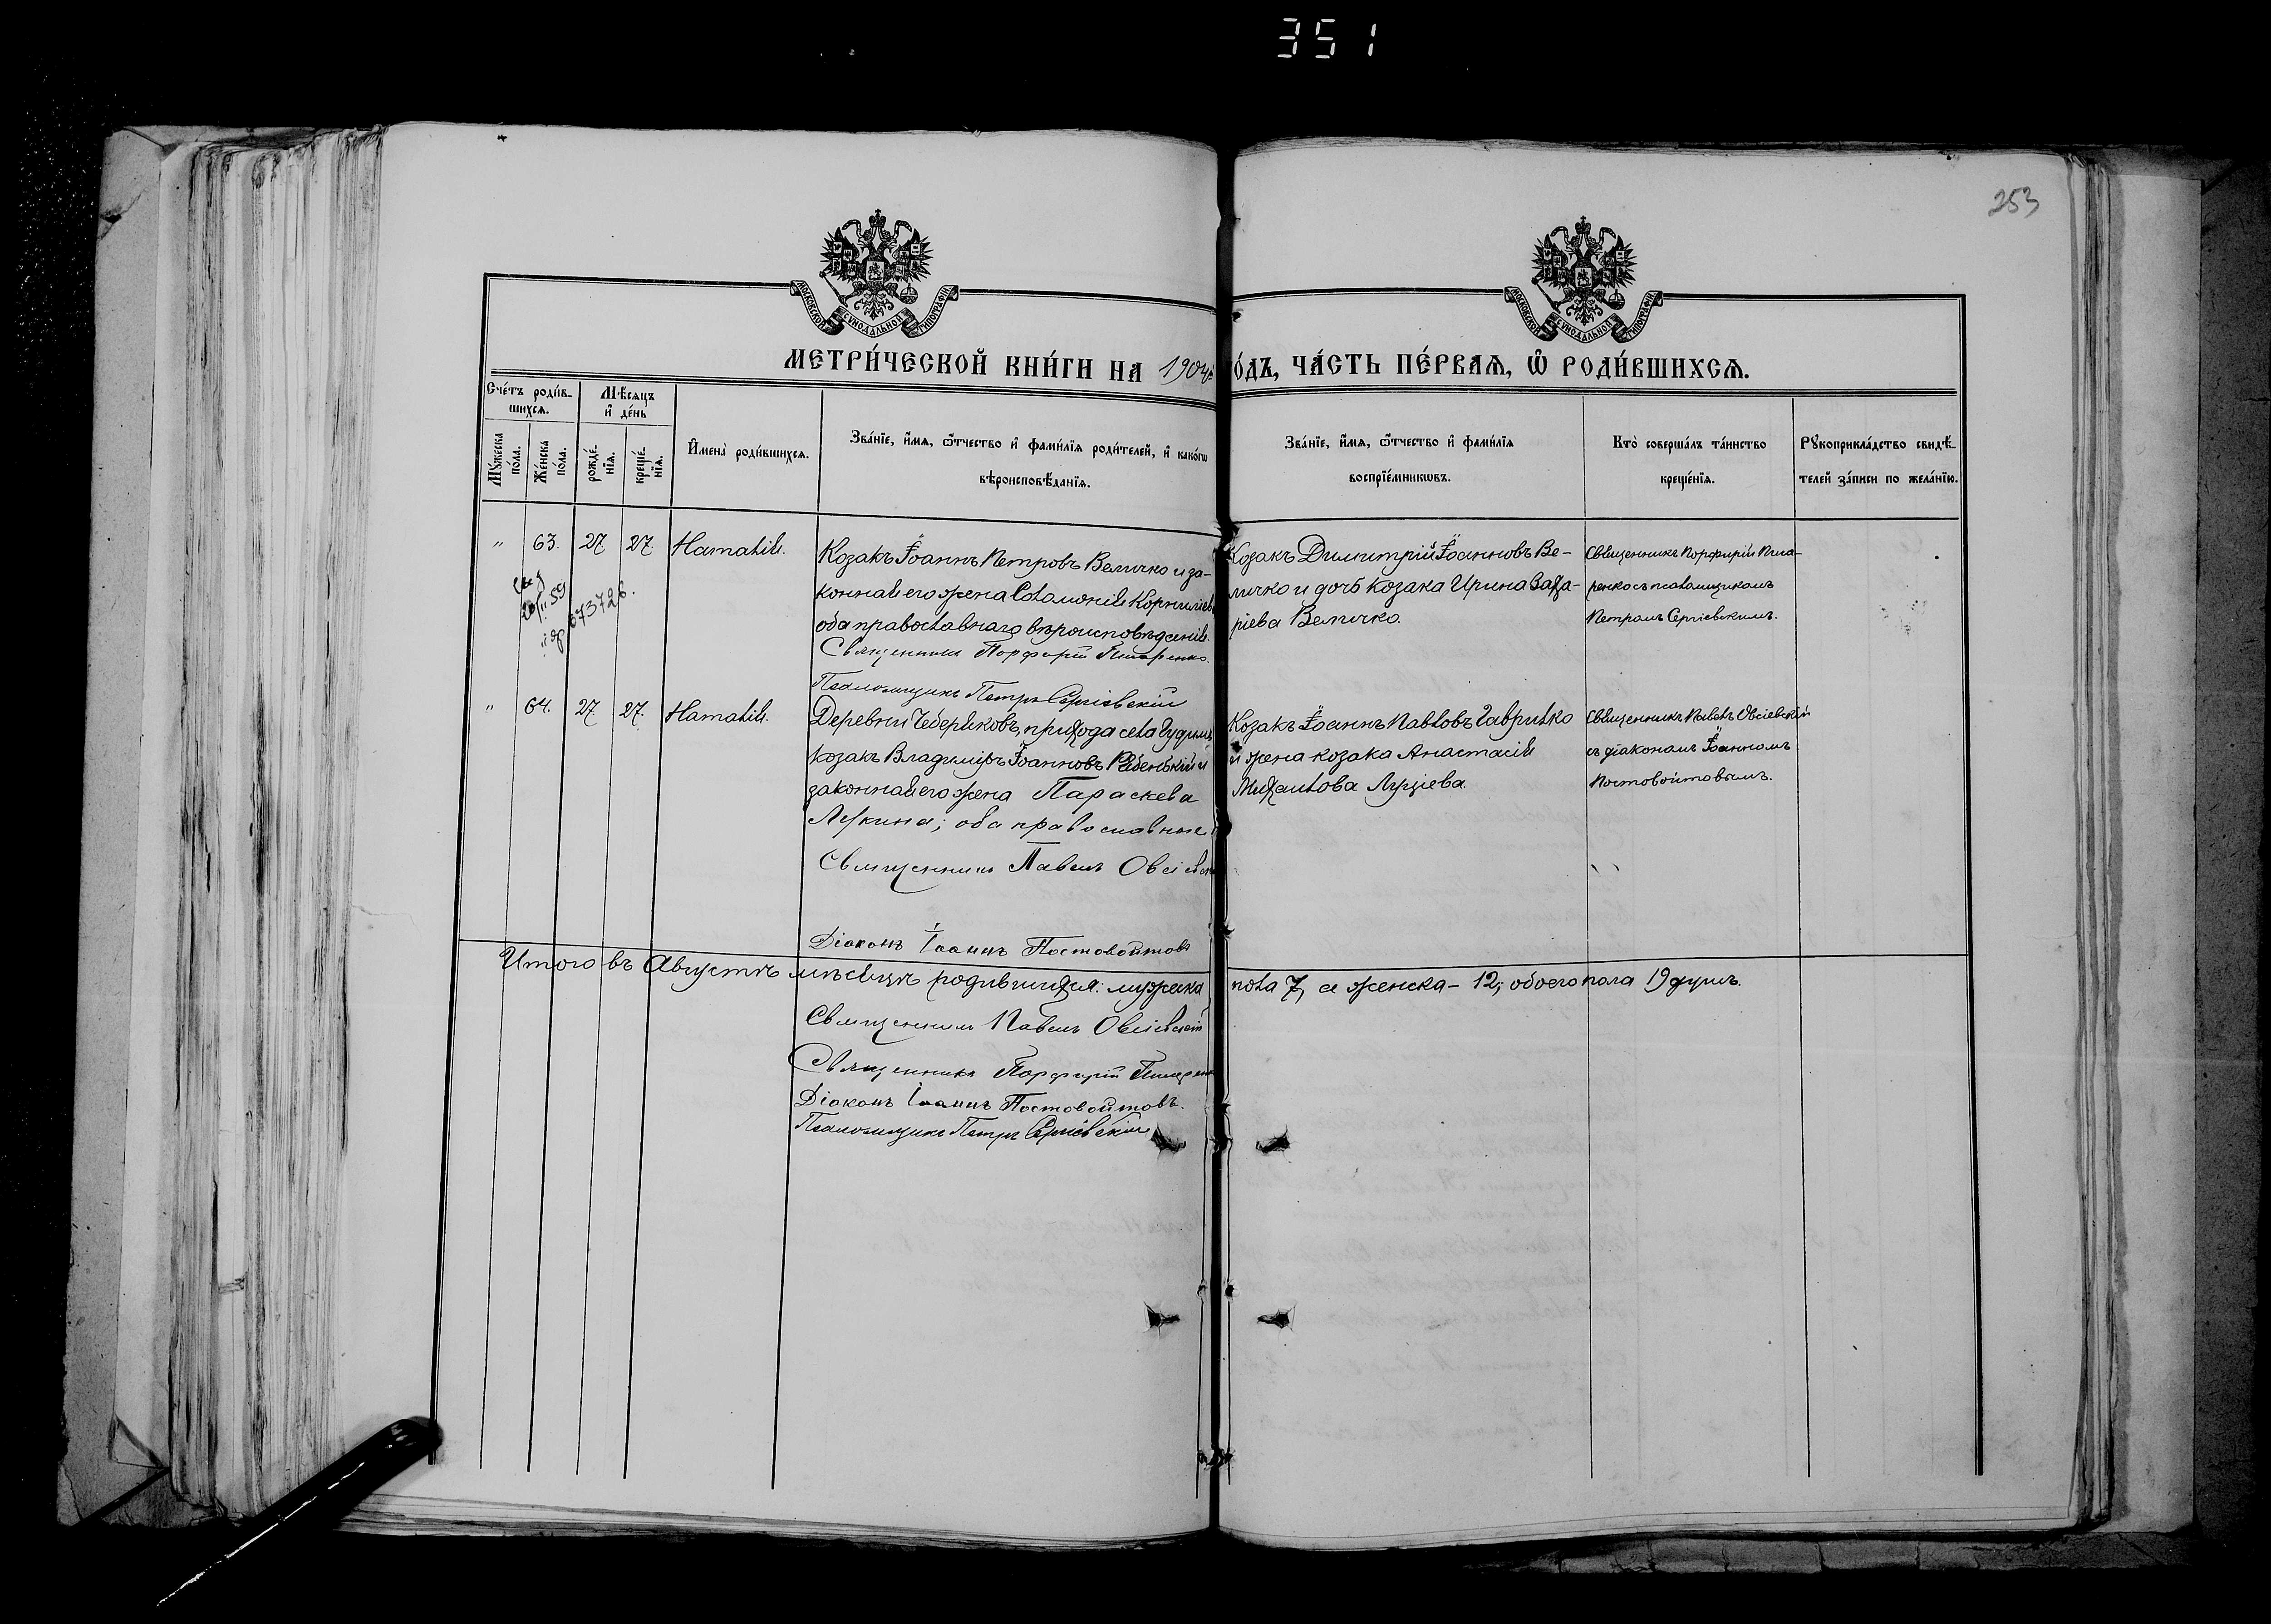 351
253
МОСКОВСКОЙ СУНОДАЛЬНОЙ ТИПОГРАФІИ
МОСКОВСКОЙ СУНОДАЛЬНОЙ ТИПОГРАФІИ
МЕТРИ́ЧЕСКОЙ КНИ́ГИ НА 1904
О́ДЪ, ЧА́СТЬ ПЕ́РВАЯ, Ѡ РОДИ́ВШИХСЯ.
Сче́тъ роди́в-
шихся.
Мꙋ́жеска
по́ла.
Же́нска
по́ла.
Мѣ́сяцъ
и де́нь
рожде́-
нїя.
креще́-
нїя.
Имена̀ роди́вшихся.
Зва́нїе, и́мя, ѻ́тчество и фами́лїя роди́телей, и како́гѡ
вѣроисповѣ́данїя.
Зва́нїе, и́мя, ѻ́тчество и фами́лїя
воспрїе́мникѡвъ.
Кто̀ соверша́лъ та́инство
креще́нїя.
Рꙋкоприкла́дство свидѣ́-
телей за́писи по жела́нїю.
" 63. 27 27. Наталія.
20/II 59
673726.
Козакъ Іоаннъ Петровъ Величко и за-
конная его жена Соломонія Корниліев
оба православнаго вѣроисповѣданія.
Священникъ Порфирій Писаренко.
Псаломщикъ Петръ Сергіевскій
Козакъ Димитрій Іоанновъ Ве-
личко и дочь козака Ирина Заха-
ріева Величко.
Священникъ Порфирій Писа-
ренко съ псаломщикомъ
Петромъ Сергіевскимъ.
" 64. 27 27. Наталія.
Деревни Чеберяковъ, прихода села Гудимъ
козакъ Владиміръ Іоанновъ Рябенькій и
законная его жена Параскева
Лукина; оба православные
Священникъ Павелъ Овсіевск
Діаконъ Іоаннъ Постовойтовъ
Козакъ Іоаннъ Павловъ Гаврилко
и жена козака Анастасія
Михаилова Луціева.
Священникъ Павелъ Овсіевскій
съ діакономъ Іоанномъ
Постовойтовымъ.
Итого въ Августѣ мѣсяцѣ родившихся: мужеска
пола 7, а женска - 12; обоего пола 19 душъ.
Священникъ Павелъ Овсіевскій
Священникъ Порфирій Писарен
Діаконъ Іоаннъ Постовойтовъ.
Псаломщикъ Петръ Сергіевскій